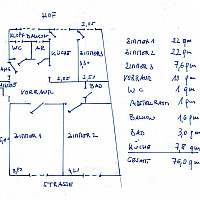 HOF
KLOPFBALKON
2,05
WC
AR
KÜCHE
ZIMMER 3
3,30
2,50
2,05
BAD
VORRAUM
ZIMMER 1
ZIMMER 2
3,50
STRASSE
ZIMMER 1 22 qm
ZIMMER 2 22 qm
ZIMMER 3 7,6 qm
VORRAUM 10 qm
WC 1 qm
ABSTELLRAUM 1 qm
BALKON 1,6 qm
BAD 3,0 qm
KÜCHE 7,8 qm
GESAMT 76,0 qm